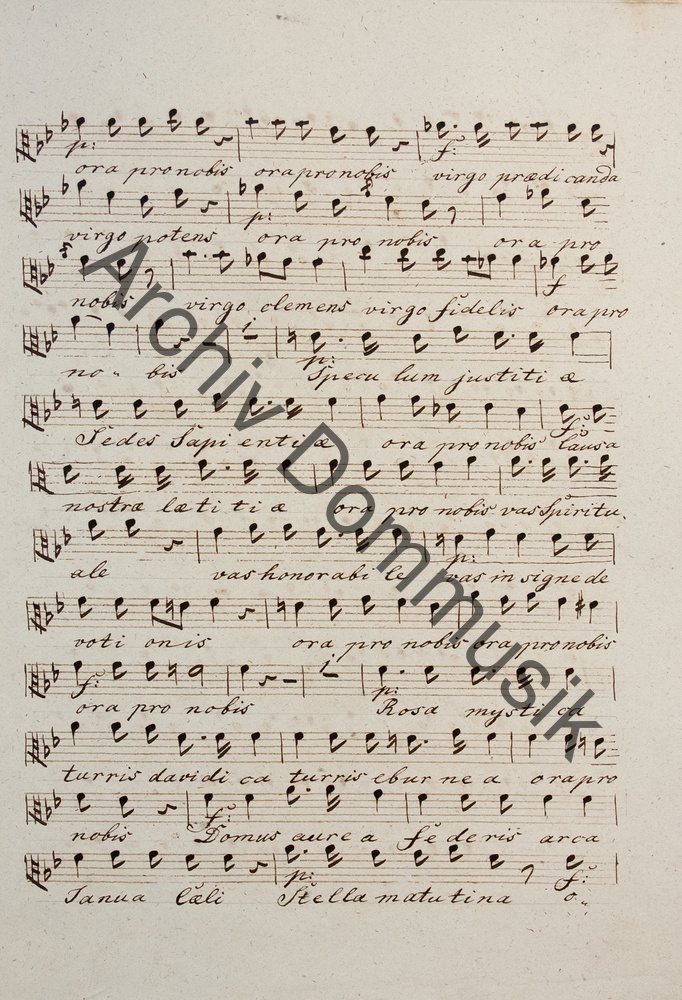 p: f:
ora pro nobis ora pro nobis virgo prædicanda
p:
virgo potens ora pro nobis ora pro
f
nobis virgo clemens virgo fidelis ora pro
p:
no- bis Specu lum justiti æ
f:
Sedes Sapi enti æ ora pro nobis Causa
nostræ læti ti æ ora pro nobis vas Spiritu-
p:
ale vas honorabi le vas in signe de
voti onis ora pro nobis ora pro nobis
f: p:
ora pro nobis Rosa mysti ca
turris davidi ca turris ebur ne a ora pro
f:
nobis Domus aure a fe deris arca
p: f:
Janua Cæli Stella matutina o-
Archiv Dommusik